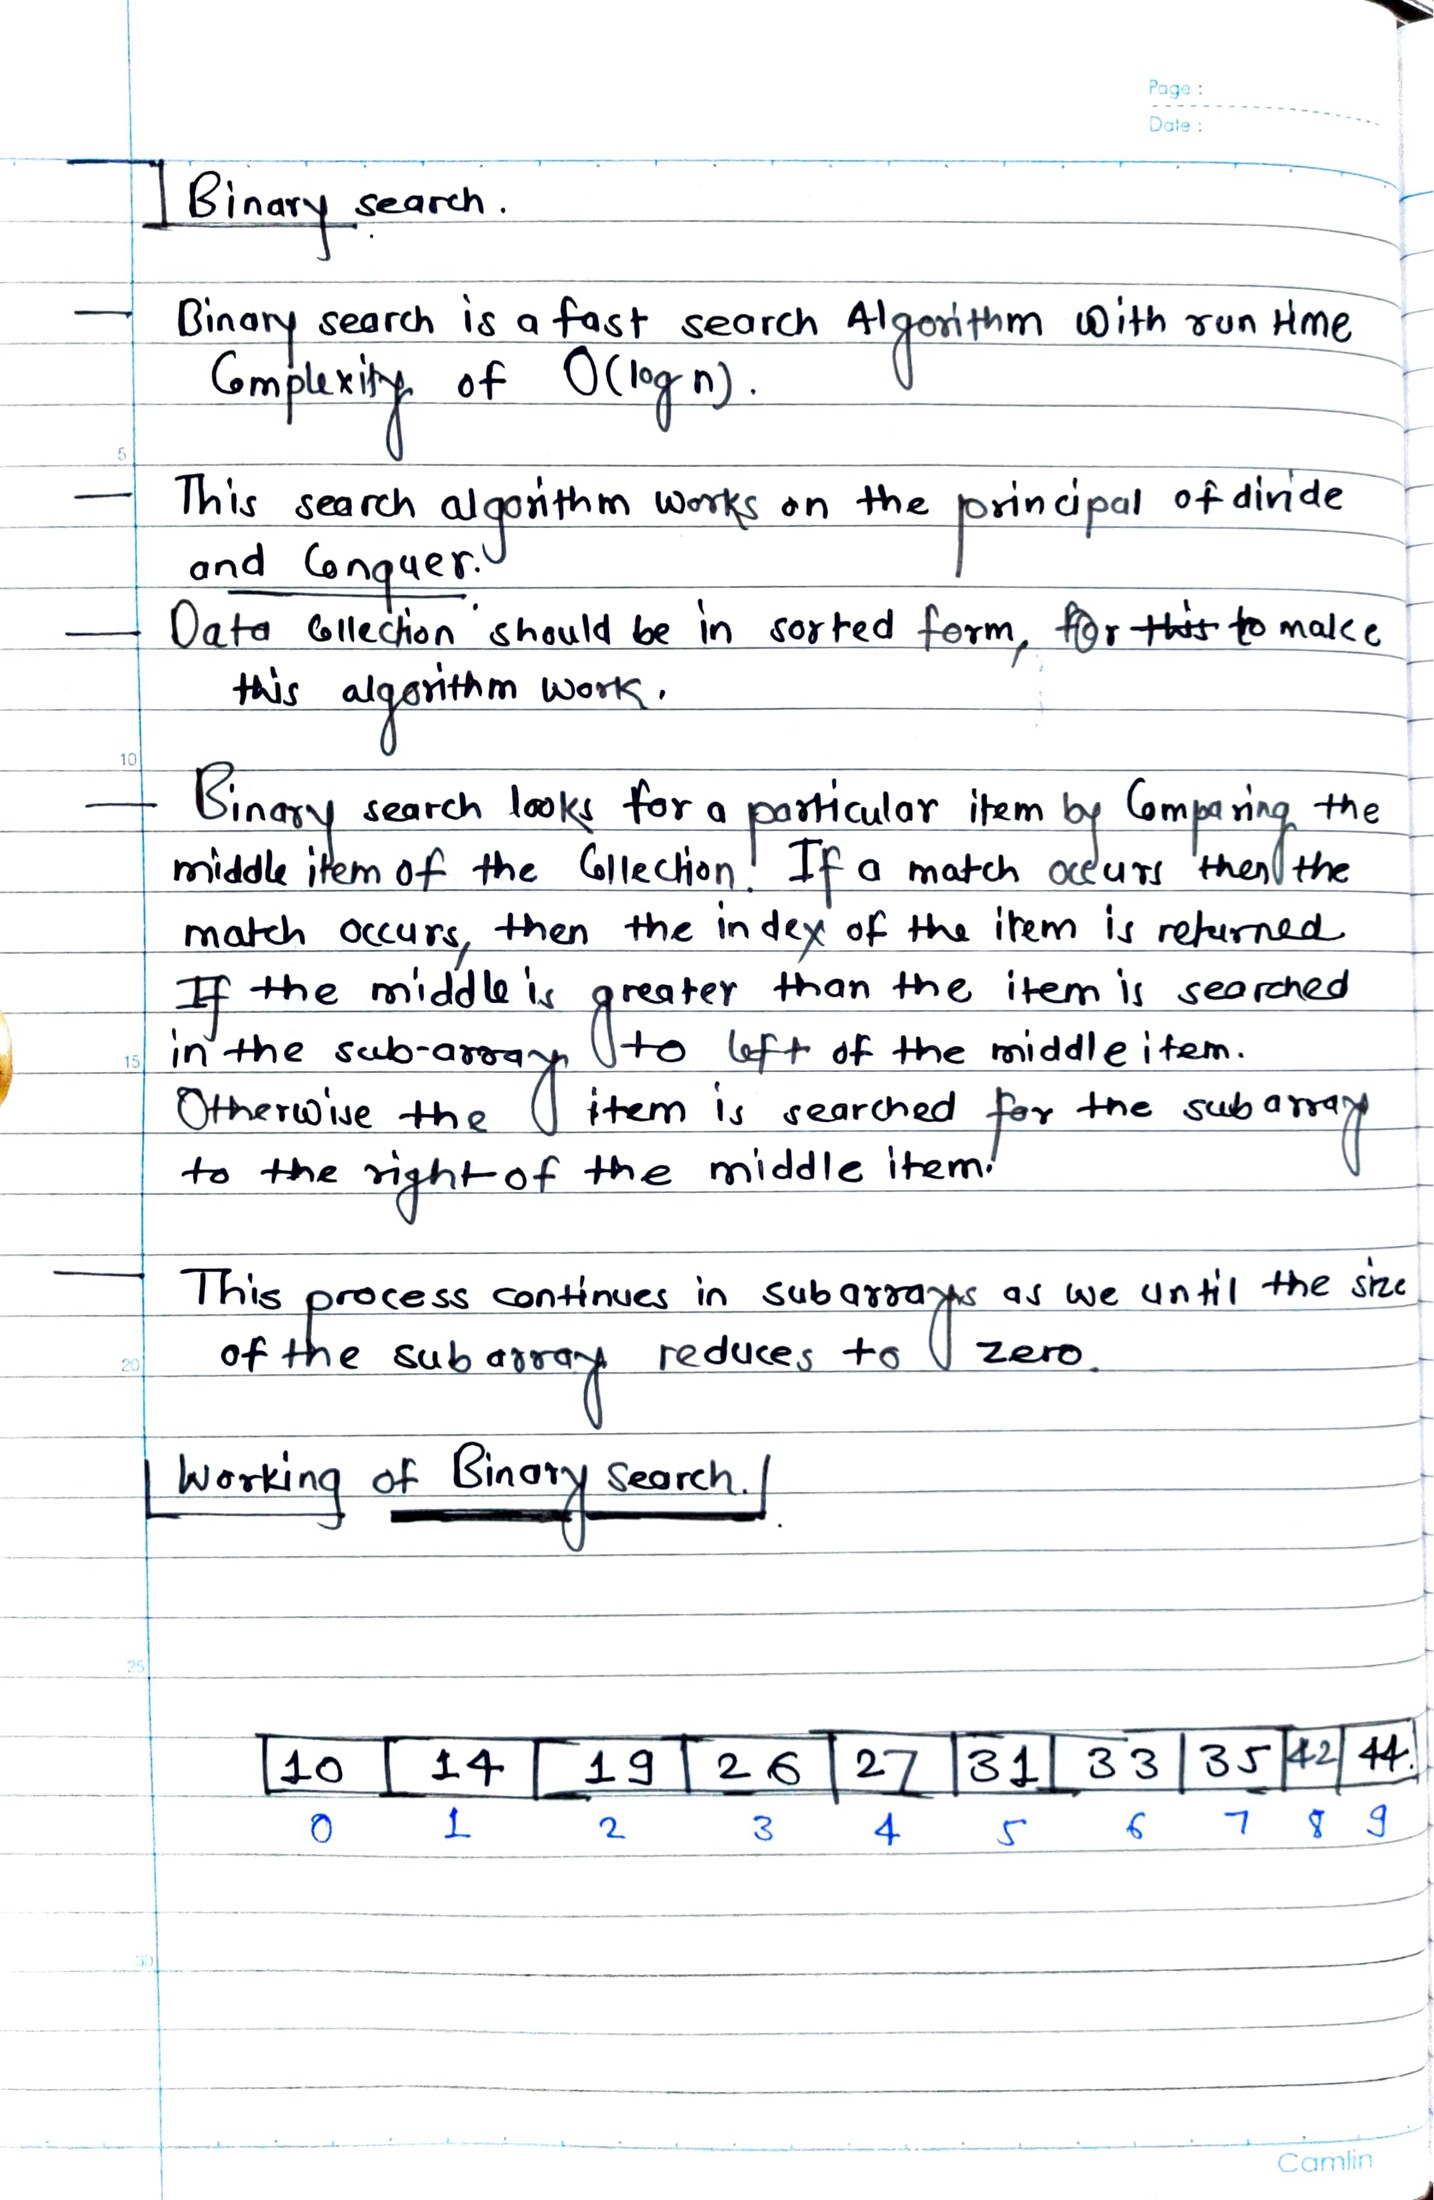 Page :
Date :
Binary search.
Binary search is a fast search Algorithm with run time
Complexity of O(log n).
5
This search algorithm works on the principal of divide
and Conquer.
Data Collection should be in sorted form, for this to make
this algorithm work.
10
Binary search looks for a particular item by Comparing the
middle item of the Collection. If a match occurs then the
match occurs, then the index of the item is returned
If the middle is greater than the item is searched
15 in the sub-array to left of the middle item.
Otherwise the item is searched for the sub array
to the right of the middle item.
This process continues in subarrays as we until the size
20 of the sub array reduces to zero.
Working of Binary Search.
25
10 14 19 26 27 31 33 35 42 44.
0 1 2 3 4 5 6 7 8 9
30
Camlin